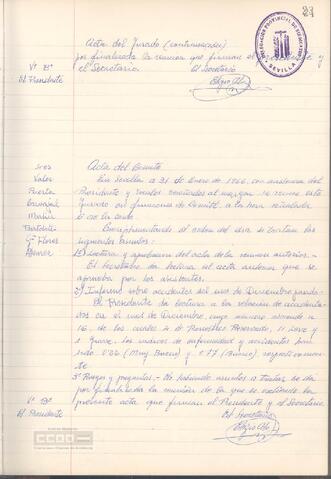 27
DELEGACION PROVINCIAL DE
SEVILLA
Acta del Jurado (continuación)
por finalizada la reunión que firman el Presidente y
Vº Bº
el Secretario.
El Secretario
El Presidente
Sres
Acta del Comité
Valor
En Sevilla a 21 de Enero de 1966, con asistencia del
Puerta
Presidente y vocales reseñados al margen se reune este
Carvajal
Jurado en funciones de Comité, a la hora señalada
Marín
Cumplimentando el orden del día se tratan los
Gª Flores
siguientes asuntos:
1º Lectura y aprobación del acta de la reunión anterior. -
El Secretario da lectura al acta anterior que se
aprueba por los asistentes.
2º) Informe sobre accidentes del mes de Diciembre pasado.
El Presidente da lectura a la relación de accidenta-
dos en el mes de Diciembre, cuyo número asciende a
16, de los cuales 4 de Pronóstico Reservado, 11 Leve y
1 Grave. Los índices de enfermedad y accidentes han
sido (Muy Bueno) y 1'77 (Bueno) respectivamente
3º Ruegos y preguntas. - No habiendo asuntos a tratar se da
por finalizada la reunión de la que se extiende la
Vº Bº
presente acta que firman el Presidente y el Secretario.
El Presidente
El Secretario
CCOO